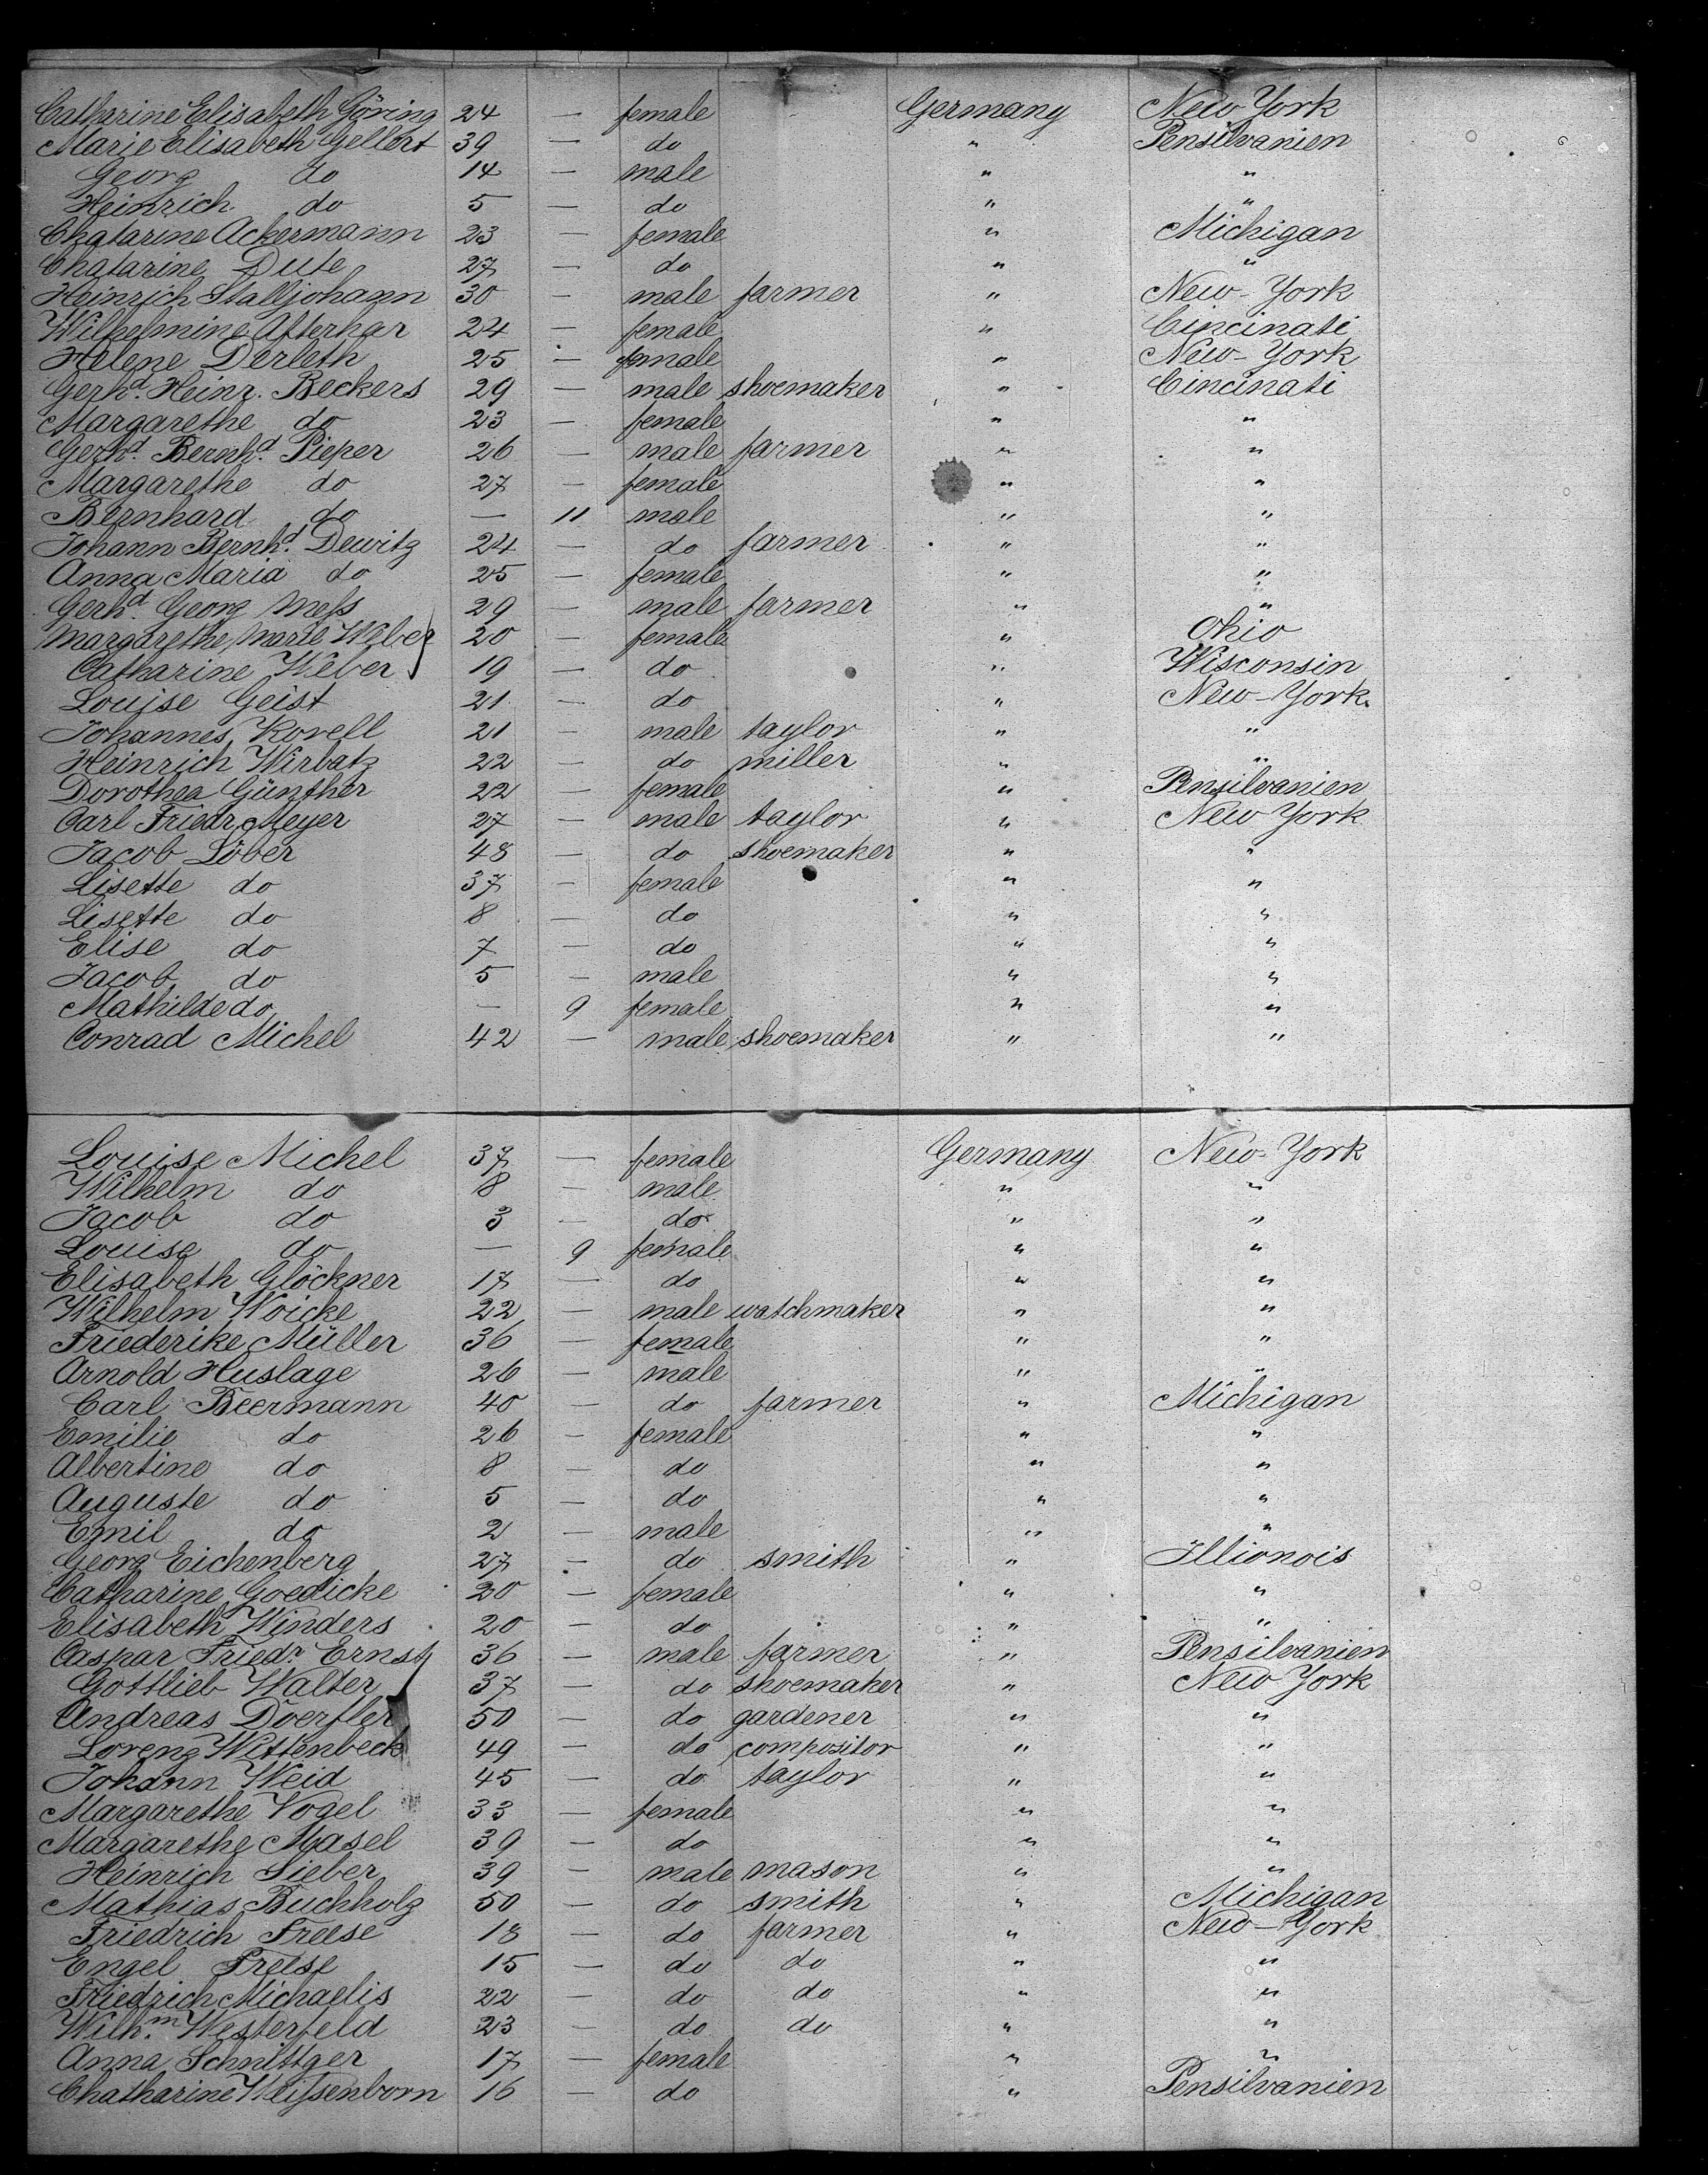 Catharine Elisabeth Göring 24 — female Germany New York
Marie Elisabeth Gellert 39 — do " Pensilvanien
Georg do 14 — male " "
Heinrich do 5 — do " "
Chatarine Ackermann 23 — female " Michigan
Chatarine Dute 27 — do " "
Heinrich Stalljohann 30 — male farmer " New-York
Wilhelmine Afterhar 24 — female " Cincinati
Helene Derleth 25 — female " New-York
Gerhd. Heinr. Beckers 29 — male shoemaker " Cincinati
Margarethe do 23 — female " "
Gerhd. Bernhd. Pieper 26 — male farmer " "
Margarethe do 27 — female " "
Bernhard do — 11 male " "
Johann Bernhd. Dewitz 24 — do farmer " "
Anna Maria do 25 — female " "
Gerhd. Georg Meſs 29 — male farmer " "
Margarethe Marie Weber 20 — female " Ohio
Catharine Weber 19 — do " Wisconsin
Louise Geist 21 — do " New-York.
Johannes Korell 21 — male taylor " "
Heinrich Wirbatz 22 — do miller " "
Dorothea Günther 22 — female " Pensilvanien
Carl Friedr. Meyer 27 — male taylor " New York
Jacob Löber 48 — do shoemaker " "
Lisette do 37 — female " "
Lisette do 8 — do " "
Elise do 7 — do " "
Jacob do 5 — male " "
Mathilde do — 9 female " "
Conrad Michel 42 — male shoemaker " "
Louise Michel 37 — female Germany New-York
Wilhelm do 8 — male " "
Jacob do 3 — do " "
Louise do — 9 female " "
Elisabeth Glöckner 17 — do " "
Wilhelm Woicke 22 — male watchmaker " "
Friederike Müller 36 — female " "
Arnold Huslage 26 — male " "
Carl Beermann 40 — do farmer " Michigan
Emilie do 26 — female " "
Albertine do 8 — do " "
Auguste do 5 — do " "
Emil do 2 — male " "
Georg Eichenberg 27 — do smith " Illionois
Catharine Goedicke 20 — female " "
Elisabeth Winders 20 — do " "
Caspar Friedr. Ernst 36 — male farmer " Pensilvanien
Gottlieb Walter 37 — do shoemaker " New York
Andreas Doerfler 50 — do gardener " "
Lorenz Wittenbeck 49 — do compositor " "
Johann Weid 45 — do taylor " "
Margarethe Vogel 33 — female " "
Margarethe Masel 39 — do " "
Heinrich Sieber 39 — male mason " "
Mathias Buchholz 50 — do smith " Michigan
Friedrich Freese 18 — do farmer " New-York
Engel Freese 15 — do do " "
Friedrich Michaelis 22 — do do " "
Wilh.m Westerfeld 23 — do do " "
Anna Schnittger 17 — female " "
Chatharine Weiſsenborn 16 — do " Pensilvanien